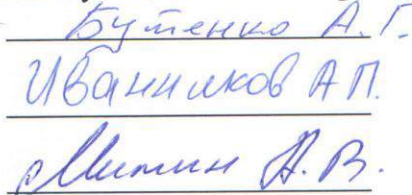 Бутенко А.Г.
Иванников А П.
Митин А.В.